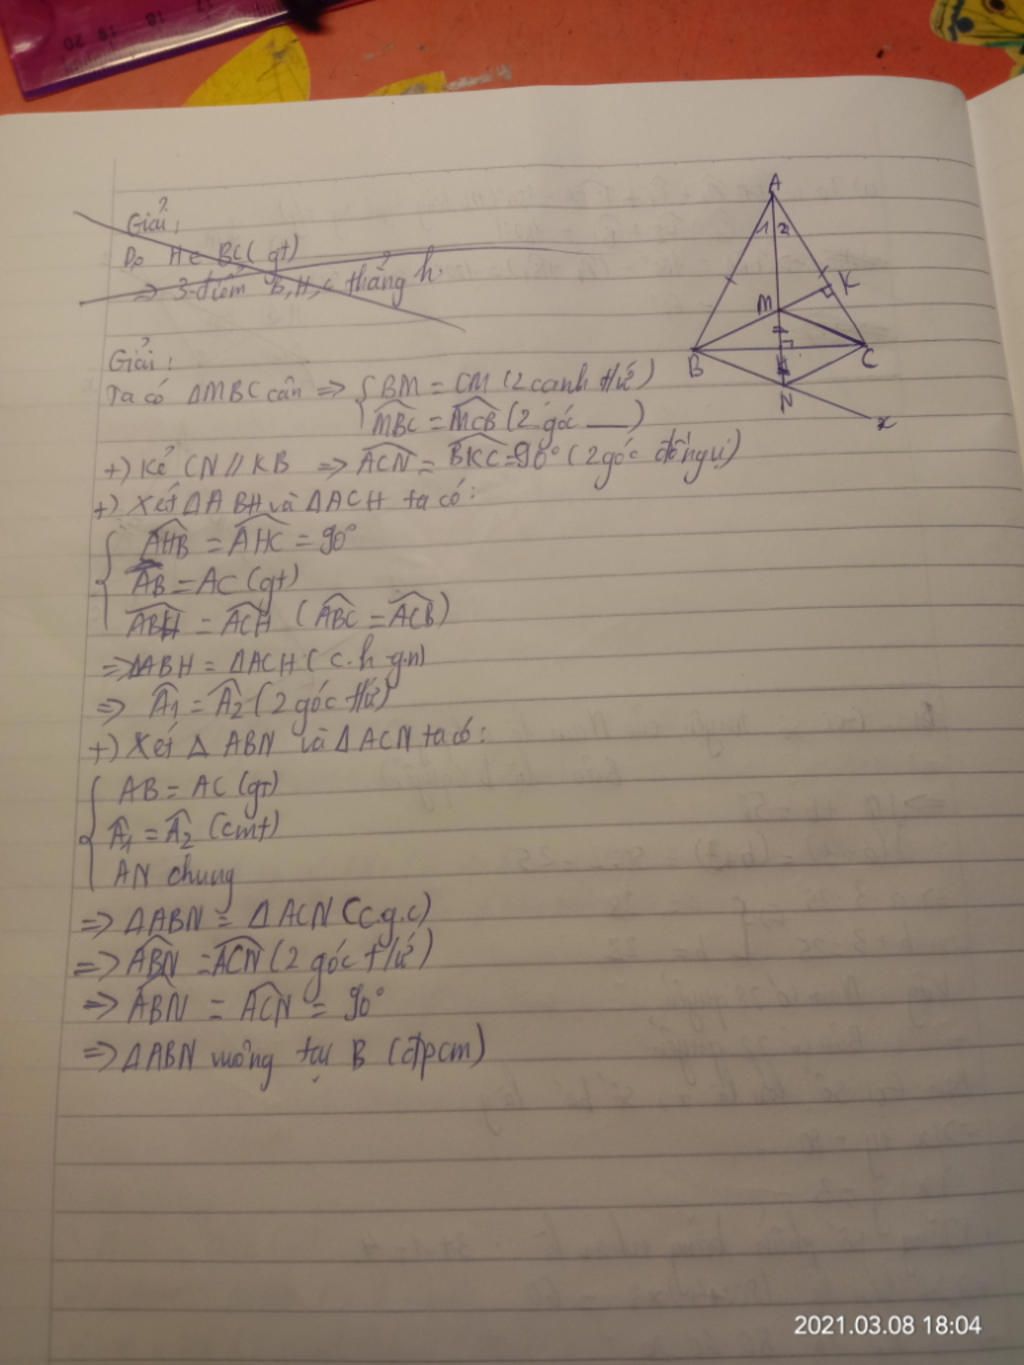 17 18 19 20
Giải:
Do H ∈ BC (gt)
=> 3 điểm B, H, C thẳng h.
A
1 2
K
M
B
C
N
x
Giải:
Ta có ΔMBC cân => { BM = CM (2 cạnh t/ứ)
MBC = MCB (2 góc __)
+) Kẻ CN // KB => ACN = BKC = 90° (2 góc đồng vị)
+) Xét ΔABH và ΔACH ta có:
AHB = AHC = 90°
AB = AC (gt)
ABH = ACH (ABC = ACB)
=> ΔABH = ΔACH (c.h-g.n)
=> A1 = A2 (2 góc t/ứ)
+) Xét Δ ABN và ΔACN ta có:
AB = AC (gt)
A1 = A2 (cmt)
AN chung
=> ΔABN = ΔACN (c.g.c)
=> ABN = ACN (2 góc t/ứ)
=> ABN = ACN = 90°
=> ΔABN vuông tại B (đpcm)
2021.03.08 18:04